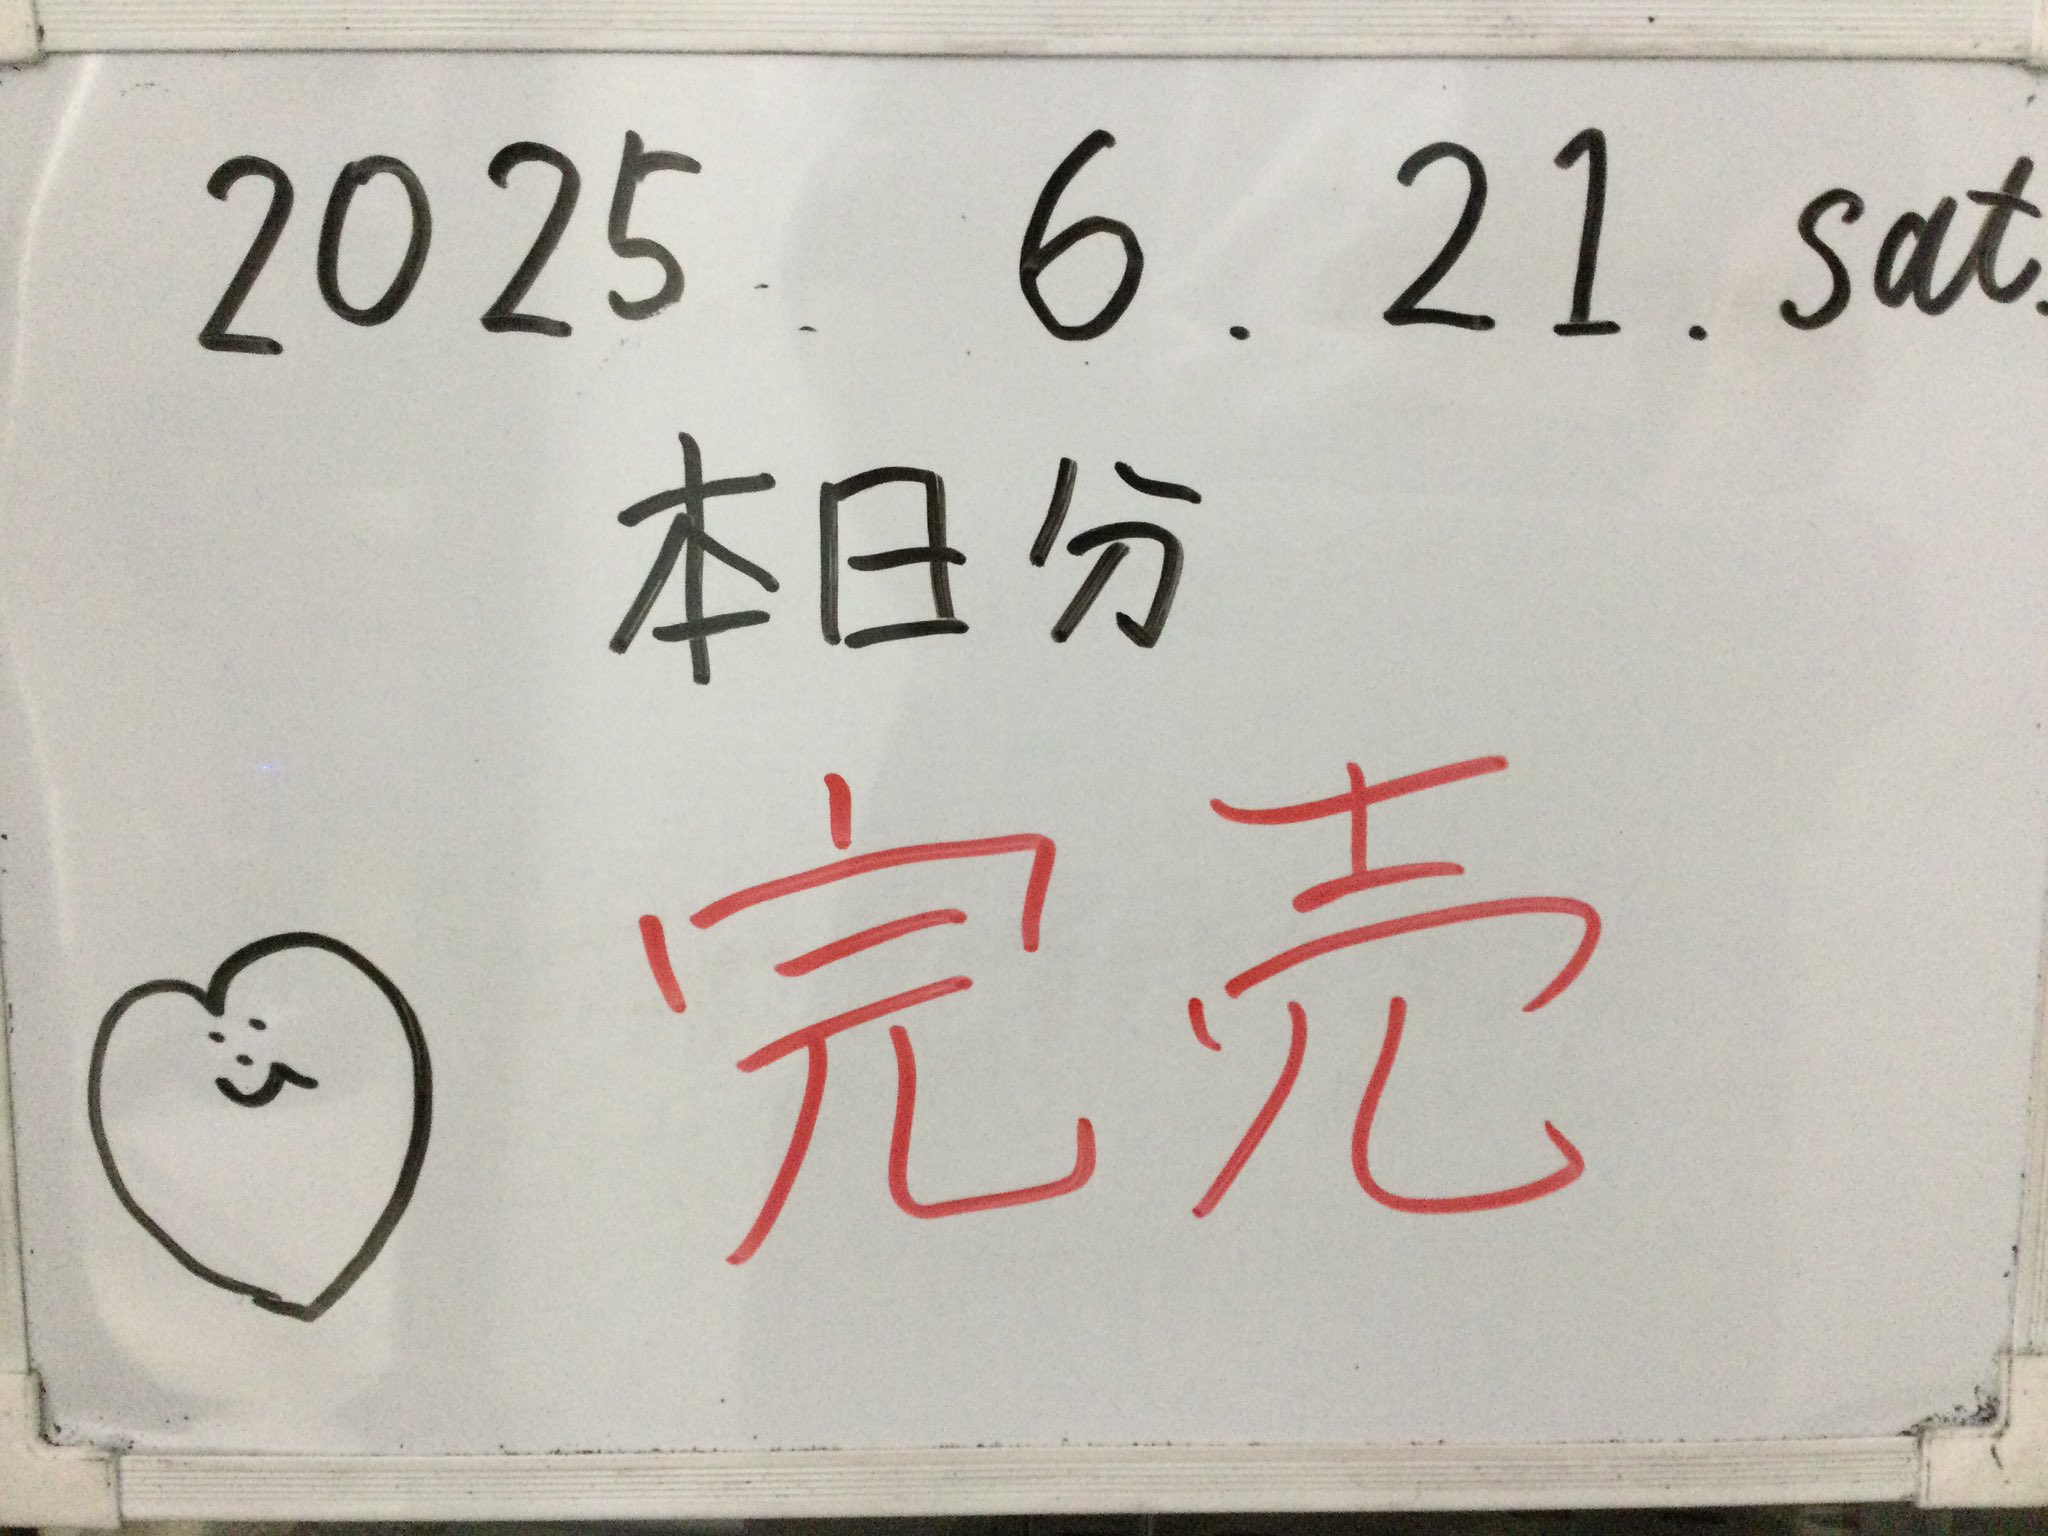 2025. 6. 21. sat.
本日分
完売